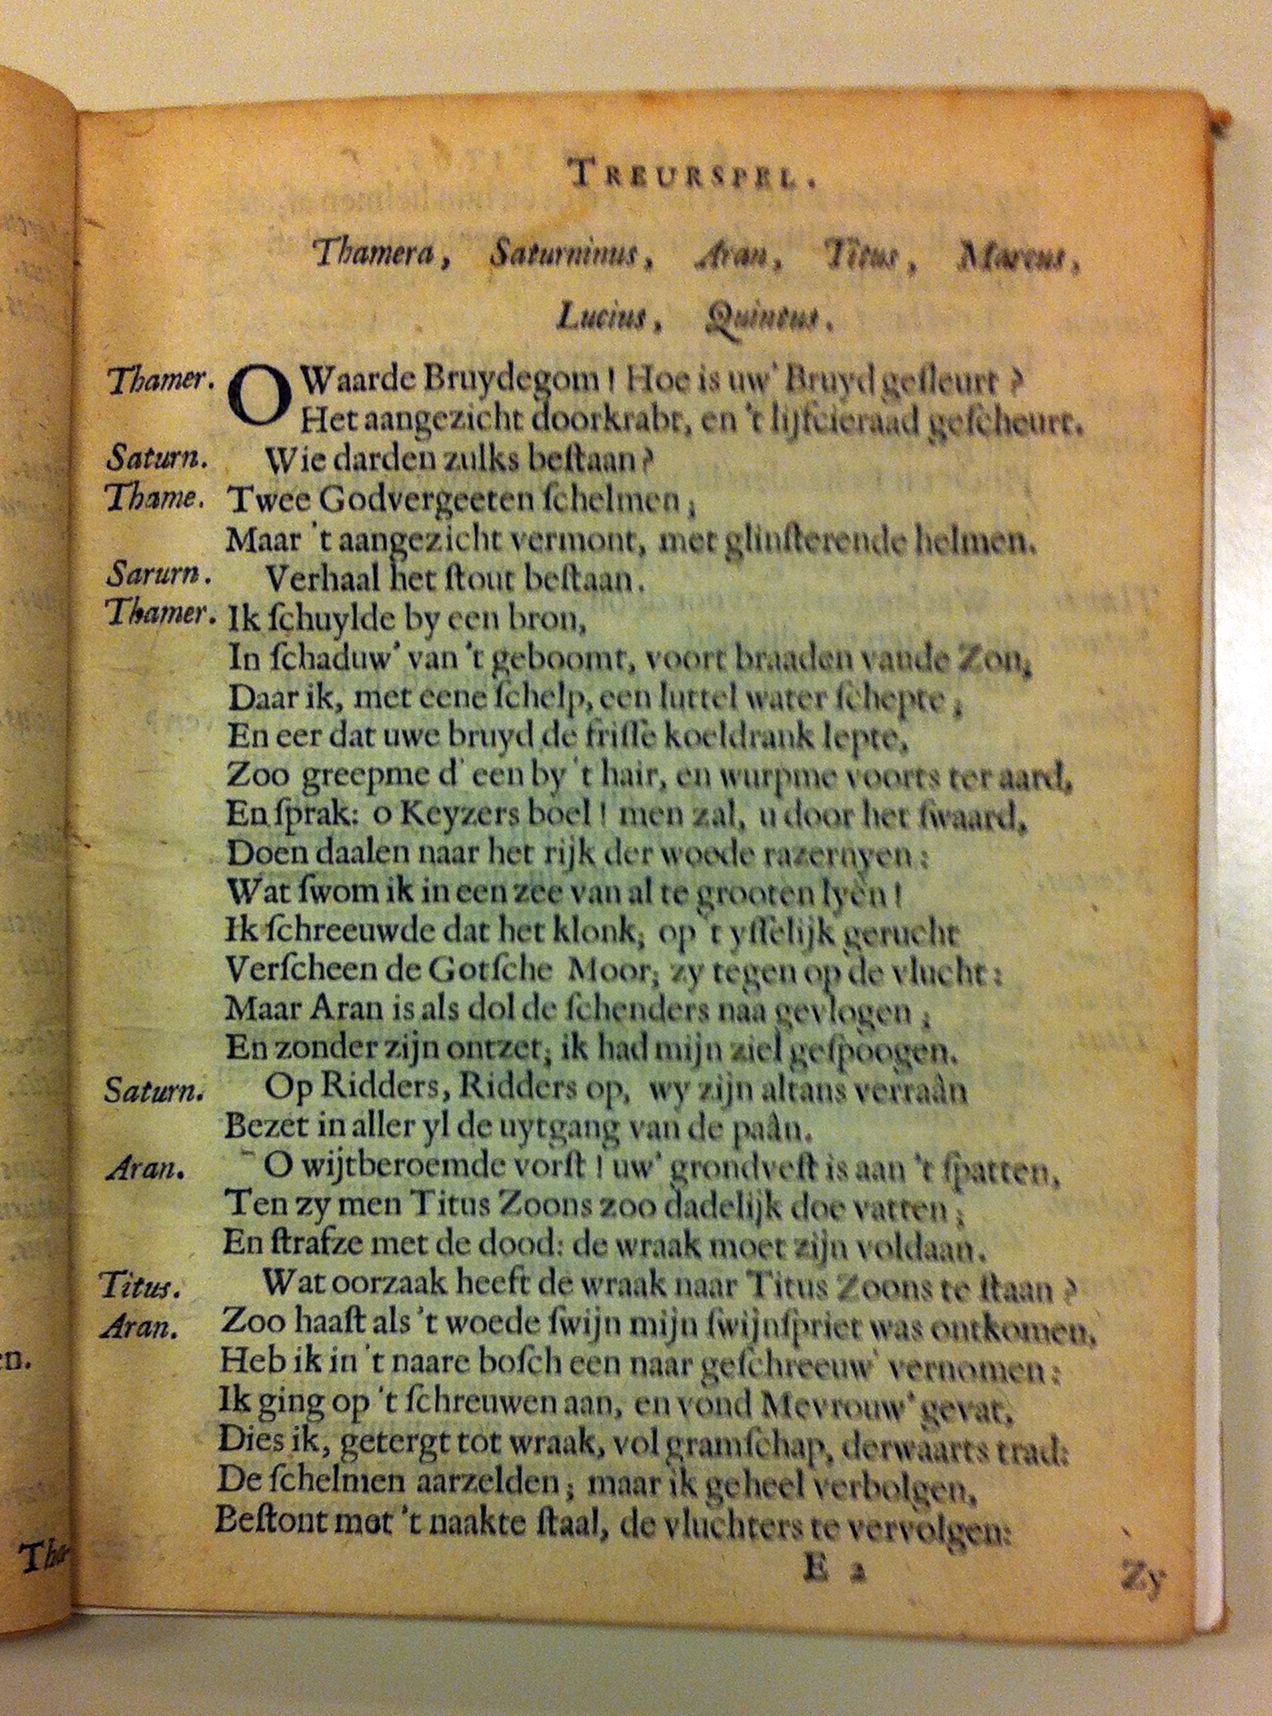 TREURSPEL.
Thamera, Saturninus, Aran, Titus, Marcus,
Lucius, Quintus.
Thamer. O Waarde Bruydegom! Hoe is uw' Bruyd gesleurt?
Het aangezicht doorkrabt, en 't lijfcieraad geſcheurt.
Saturn. Wie darden zulks beſtaan?
Thame. Twee Godvergeeten ſchelmen;
Maar 't aangezicht vermomt, met glinſterende helmen.
Sarurn. Verhaal het ſtout beſtaan.
Thamer. Ik ſchuylde by een bron,
In ſchaduw' van 't geboomt, voort braaden vande Zon,
Daar ik, met eene ſchelp, een luttel water ſchepte;
En eer dat uwe bruyd de friſſe koeldrank lepte,
Zoo greepme d' een by 't hair, en wurpme voorts ter aard,
En ſprak: o Keyzers boel! men zal, u door het ſwaard,
Doen daalen naar het rijk der woede razernyen:
Wat ſwom ik in een zee van al te grooten lyên!
Ik ſchreeuwde dat het klonk; op 't yſſelijk gerucht
Verſcheen de Gotſche Moor; zy tegen op de vlucht:
Maar Aran is als dol de ſchenders naa gevlogen;
En zonder zijn ontzet; ik had mijn ziel geſpoogen.
Saturn. Op Ridders, Ridders op, wy zijn altans verraân
Bezet in aller yl de uytgang van de paân.
Aran. O wijtberoemde vorſt! uw' grondveſt is aan 't ſpatten,
Ten zy men Titus Zoons zoo dadelijk doe vatten;
En ſtrafze met de dood: de wraak moet zijn voldaan.
Titus. Wat oorzaak heeft de wraak naar Titus Zoons te ſtaan?
Aran. Zoo haaſt als 't woede ſwijn mijn ſwijnſpriet was ontkomen,
Heb ik in 't naare boſch een naar geſchreeuw' vernomen:
Ik ging op 't ſchreuwen aan, en vond Mevrouw' gevat,
Dies ik, getergt tot wraak, vol gramſchap, derwaarts trad:
De ſchelmen aarzelden; maar ik geheel verbolgen,
Beſtont met 't naakte ſtaal, de vluchters te vervolgen:
E 2
Zy
en.
Tha-